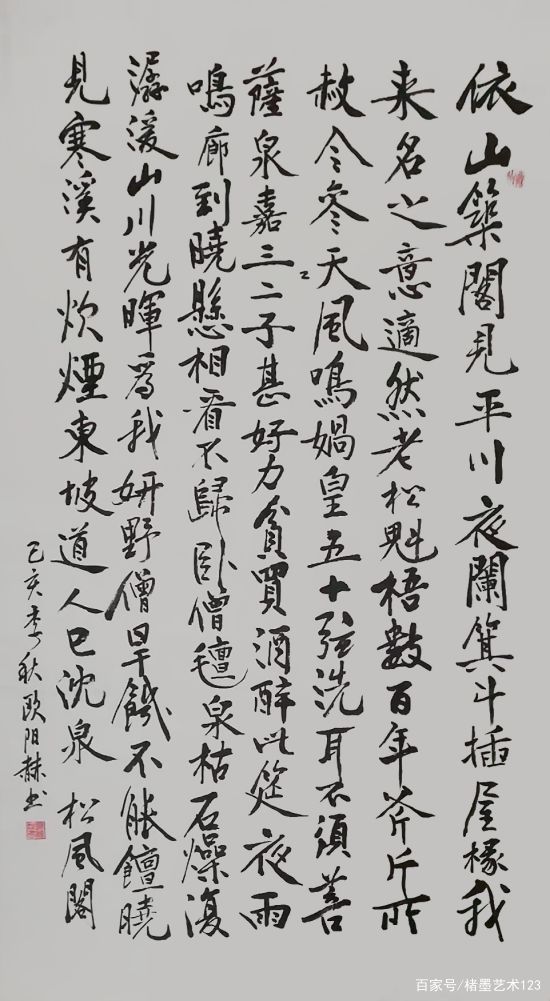 依山築閣見平川夜闌箕斗插屋椽我
来名之意適然老松魁梧數百年斧斤所
赦今參天風鳴媧皇五十弦洗耳不須菩
薩泉嘉三二子甚好力貧買酒醉此筵夜雨
鳴廊到曉懸相看不歸卧僧氈泉枯石燥復
潺湲山川光暉爲我妍野僧旱饑不能饘曉
見寒溪有炊煙東坡道人已沈泉 松風閣
己亥季秋欧阳赫书
百家号/楮墨艺术123